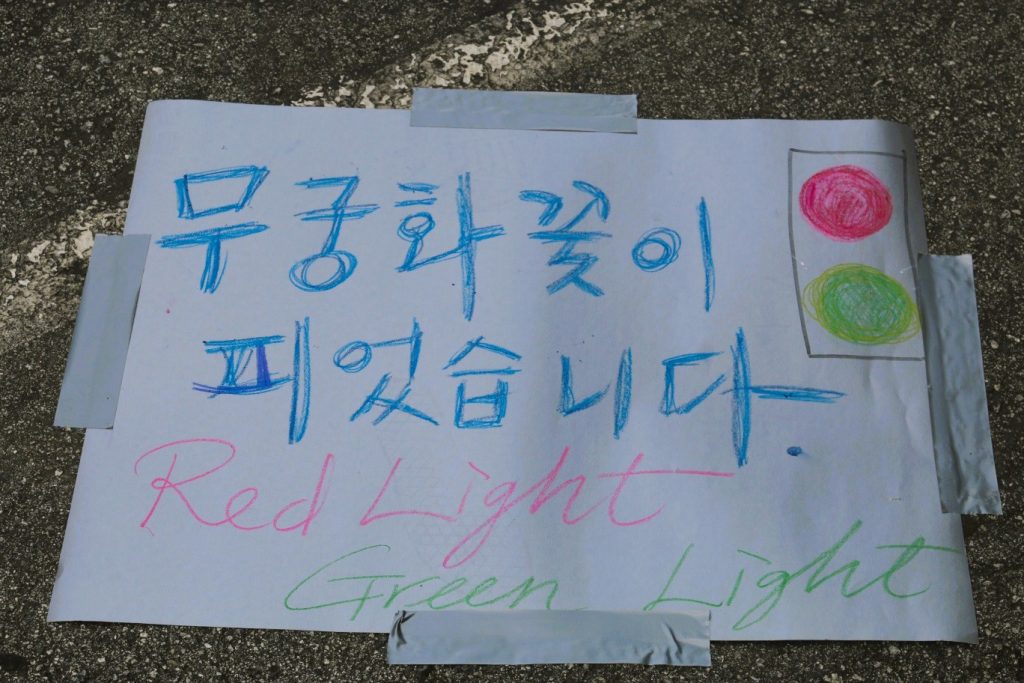 무궁화 꽃이
피었습니다.
Red Light
Green Light